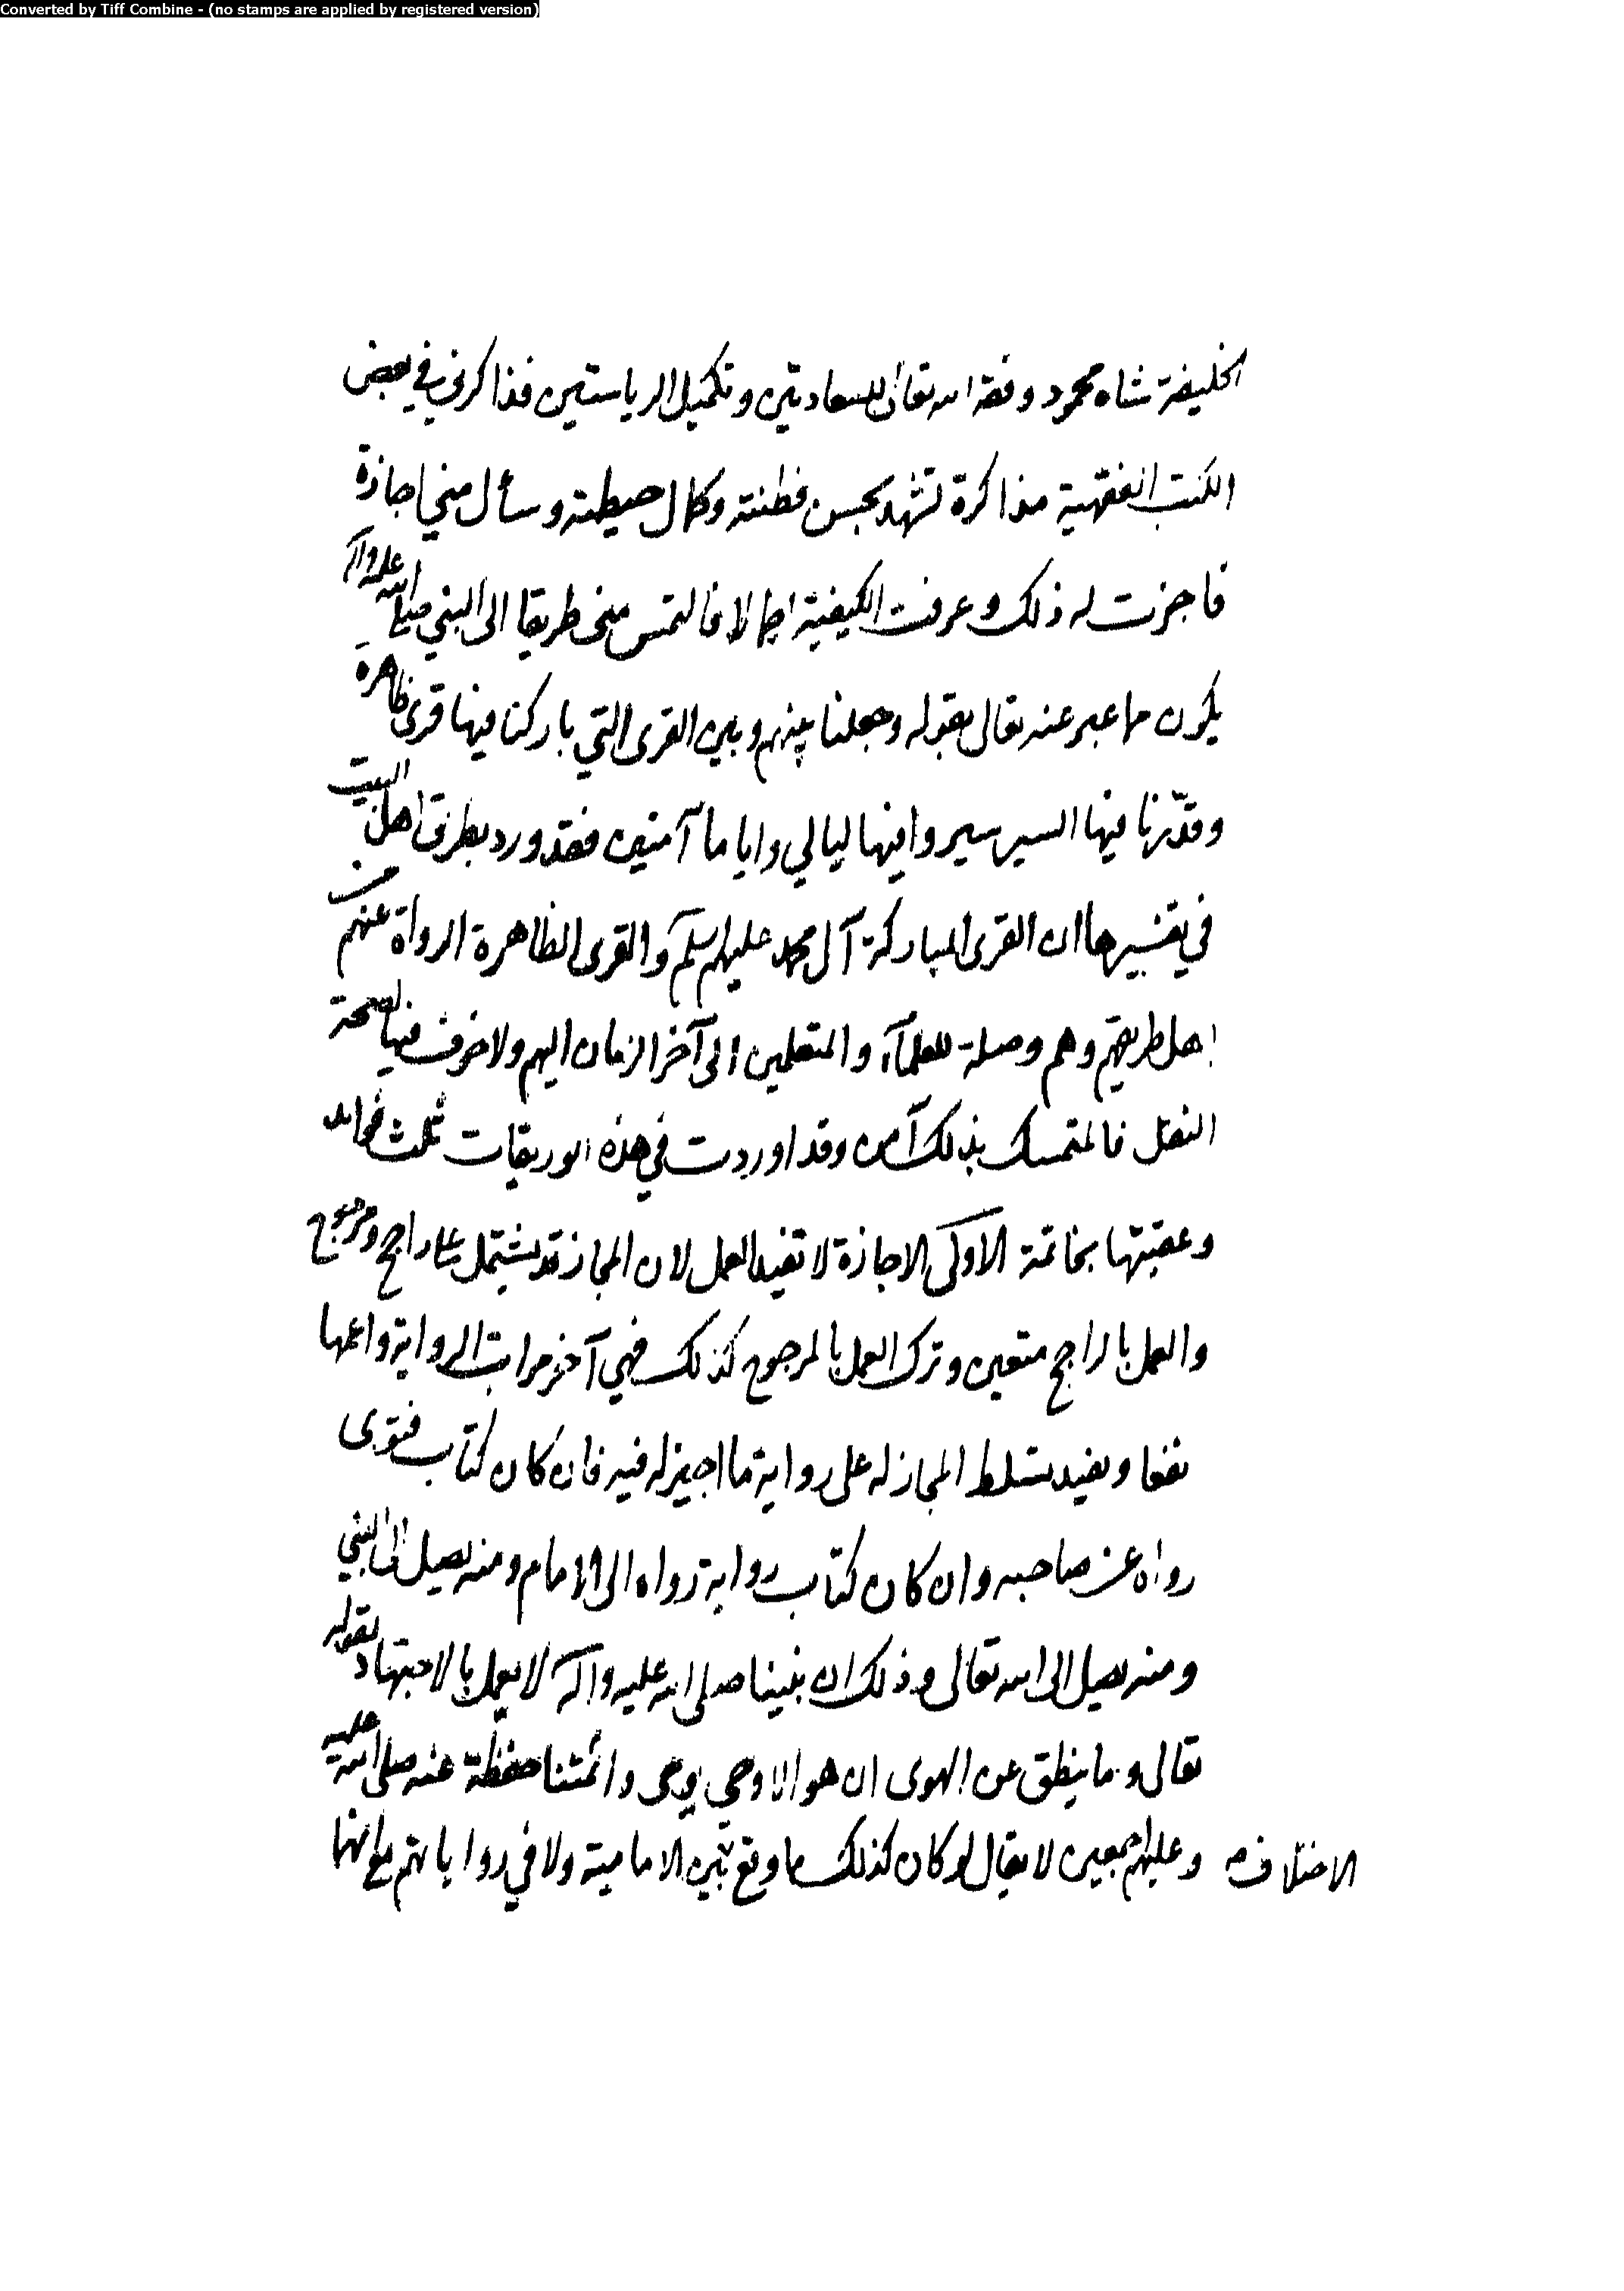 Converted by Tiff Combine - (no stamps are applied by registered version)
الخليفة شاه محمود وفقه الله تعالى للسعادتين وتكميل الرياستين فذاكرني في بعض
الكتب الفقهية مذاكرة تشهد بحسن فطنته وكمال حيطته وسأل مني اجازة
فاجزت له ذلك وعرفت الكيفية اجمالا فالتمس مني طريقا الى النبي صلى الله عليه وآله
يكون مما عبر عنه تعالى بقوله وجعلنا بينهم وبين القرى التي باركنا فيها قرى ظاهرة
وقدّرنا فيها السير سيروا فيها ليالي واياما آمنين فقد ورد بطريق اهل البيت
في تفسيرها ان القرى المباركة آل محمد عليهم سلم والقرى الظاهرة الرواة عنهم من
اهل طريقهم وهم وصلة للعلمآء والمتعلمين الى آخر الزمان اليهم ولا خوف فيها لصحة
النقل فالمتمسك بذلك آمن وقد اوردت في هذه الوريقات ثلث فوائد
وعقبتها بخاتمة الأولى الاجازة لا تفيد العمل لان المجاز قد يشتمل على راجح ومرجوح
والعمل بالراجح متعين وترك العمل بالمرجوح كذلك فهي آخر مراتب الرواية واعمها
نفعا ويفيد تسلط المجاز له على رواية ما اجيز له فيه فان كان كتاب فتوى
رواه عن صاحبه وان كان كتاب رواية رواه الى الامام ومنه يصل الى النبي
ومنه يصل الى الله تعالى وذلك ان نبينا صلى الله عليه وآله لا يعمل بالاجتهاد لقوله
تعالى وما ينطق عن الهوى ان هو الا وحي يوحى وائمتنا حفظة عنه صلى الله عليه
وعليهم اجمعين لا يقال لو كان كذلك ما وقع بين الامامية ولا في رواياتهم مع انها
الاختلاف